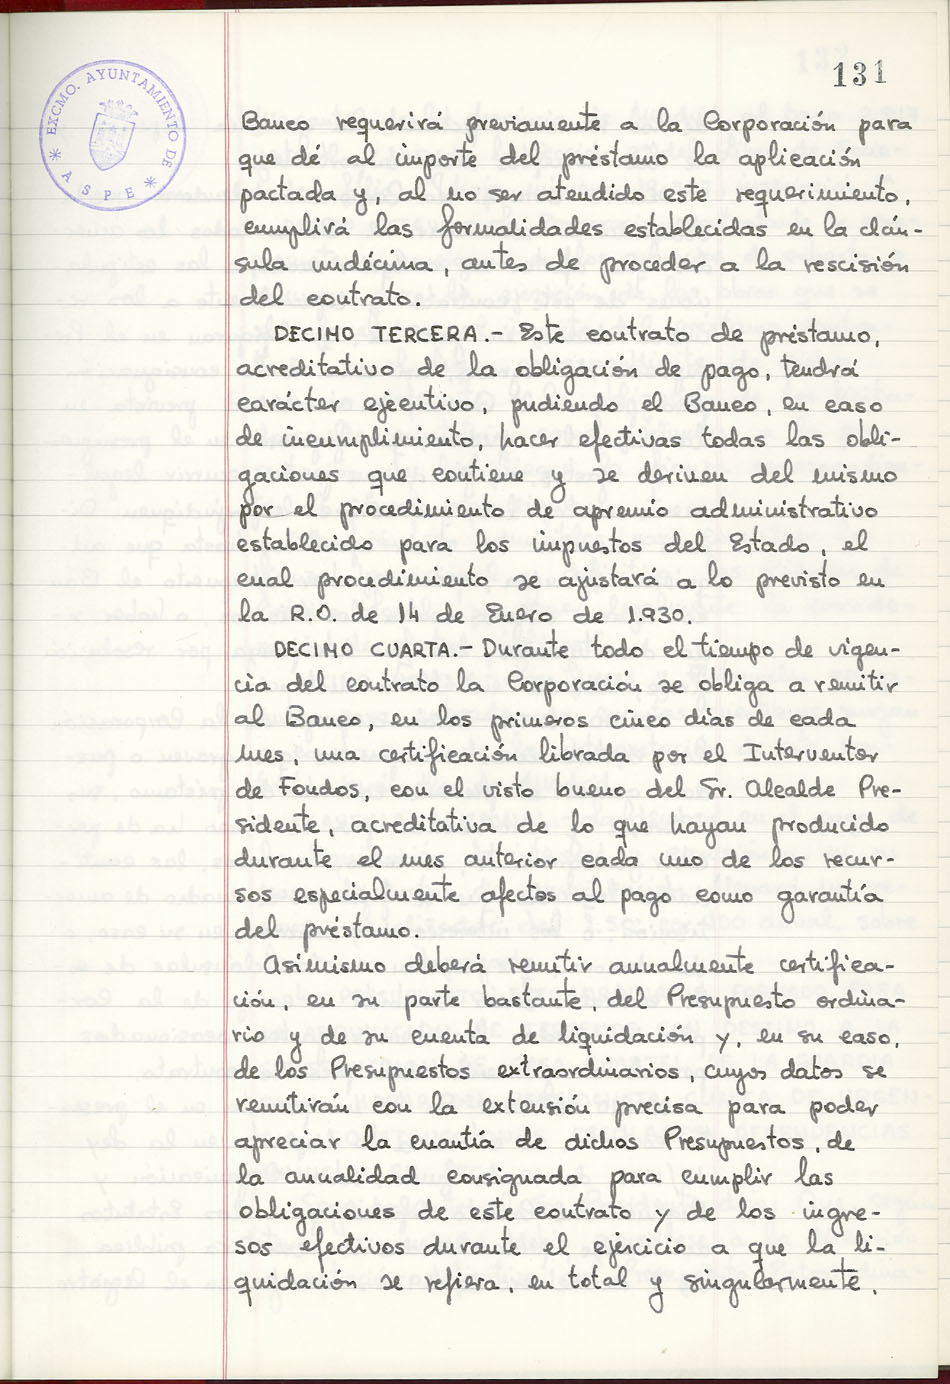 131
EXCMO. AYUNTAMIENTO DE
* ASPE *
Banco requerirá previamente a la Corporación para
que dé al importe del préstamo la aplicación
pactada y, al no ser atendido este requerimiento,
cumplirá las formalidades establecidas en la cláu-
sula undécima, antes de proceder a la rescisión
del contrato.
DECIMO TERCERA.- Este contrato de préstamo,
acreditativo de la obligación de pago, tendrá
carácter ejecutivo, pudiendo el Banco, en caso
de incumplimiento, hacer efectivas todas las obli-
gaciones que contiene y se deriven del mismo
por el procedimiento de apremio administrativo
establecido para los impuestos del Estado, el
cual procedimiento se ajustará a lo previsto en
la R.O. de 14 de Enero de 1.930.
DECIMO CUARTA.- Durante todo el tiempo de vigen-
cia del contrato la Corporación se obliga a remitir
al Banco, en los primeros cinco días de cada
mes, una certificación librada por el Interventor
de Fondos, con el visto bueno del Sr. Alcalde Pre-
sidente, acreditativa de lo que hayan producido
durante el mes anterior cada uno de los recur-
sos especialmente afectos al pago como garantía
del préstamo.
Asimismo deberá remitir anualmente certifica-
ción, en su parte bastante, del Presupuesto ordina-
rio y de su cuenta de liquidación y, en su caso,
de los Presupuestos extraordinarios, cuyos datos se
remitirán con la extensión precisa para poder
apreciar la cuantía de dichos Presupuestos, de
la anualidad consignada para cumplir las
obligaciones de este contrato y de los ingre-
sos efectivos durante el ejercicio a que la li-
quidación se refiera, en total y singularmente,